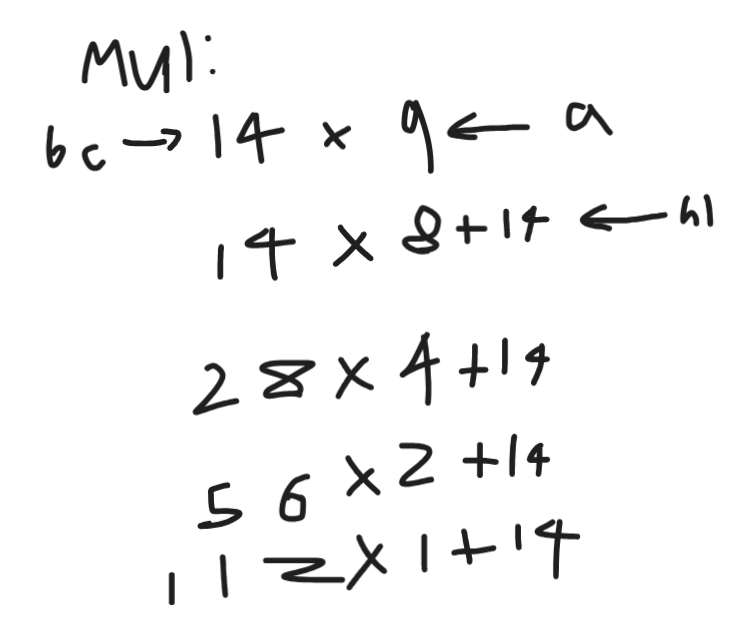 Mul:
bc → 14 × 9 ← a
14 × 8 + 14 ← hl
28 × 4 + 14
56 × 2 + 14
112 × 1 + 14